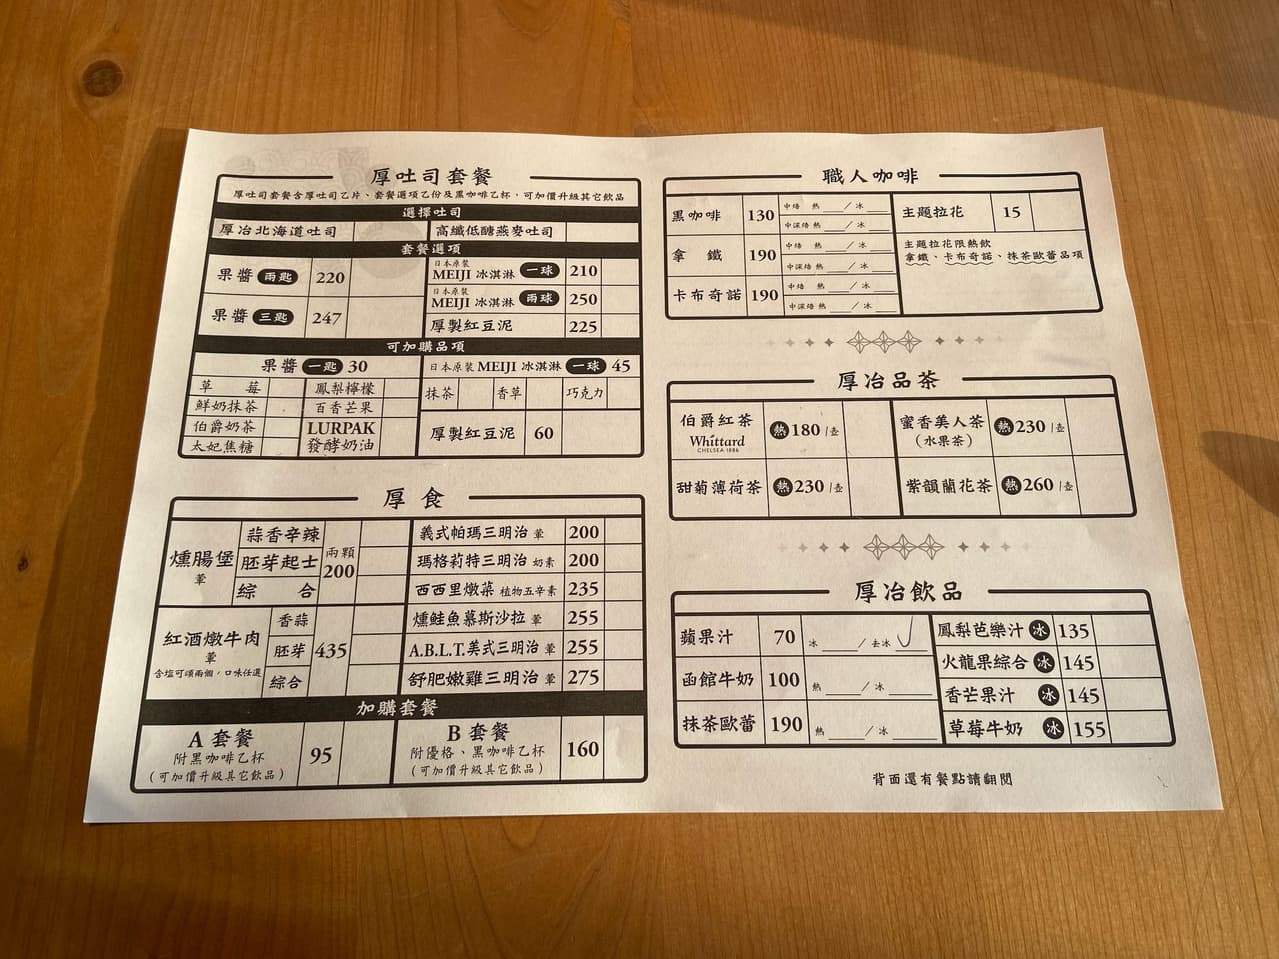 厚吐司套餐
厚吐司套餐含厚吐司乙片、套餐選項乙份及黑咖啡乙杯，可加價升級其它飲品
選擇吐司
厚冶北海道吐司 高纖低醣燕麥吐司
套餐選項
果醬 兩匙 220
果醬 三匙 247
日本原裝
MEIJI 冰淇淋 一球 210
日本原裝
MEIJI 冰淇淋 兩球 250
厚製紅豆泥 225
可加購品項
果醬 一匙 30
草莓 鳳梨檸檬
鮮奶抹茶 百香芒果
伯爵奶茶 LURPAK
太妃焦糖 發酵奶油
日本原裝 MEIJI 冰淇淋 一球 45
抹茶 香草 巧克力
厚製紅豆泥 60
厚食
燻腸堡
葷
蒜香辛辣
胚芽起士
綜合
兩顆
200
紅酒燉牛肉
葷
含塩可頌兩個，口味任選
香蒜
胚芽
綜合
435
義式帕瑪三明治 葷 200
瑪格莉特三明治 奶素 200
西西里燉菜 植物五辛素 235
燻鮭魚慕斯沙拉 葷 255
A.B.L.T.美式三明治 葷 255
舒肥嫩雞三明治 葷 275
加購套餐
A 套餐
附黑咖啡乙杯
（可加價升級其它飲品）
95
B 套餐
附優格、黑咖啡乙杯
（可加價升級其它飲品）
160
職人咖啡
黑咖啡 130
中焙 熱 / 冰
中深焙 熱 / 冰
拿鐵 190
中焙 熱 / 冰
中深焙 熱 / 冰
卡布奇諾 190
中焙 熱 / 冰
中深焙 熱 / 冰
主題拉花 15
主題拉花限熱飲
拿鐵、卡布奇諾、抹茶歐蕾品項
厚冶品茶
伯爵紅茶
Whittard
CHELSEA 1886
熱 180 /壺
蜜香美人茶
（水果茶）
熱 230 /壺
甜菊薄荷茶 熱 230 /壺
紫韻蘭花茶 熱 260 /壺
厚冶飲品
蘋果汁 70 冰 / 去冰
函館牛奶 100 熱 / 冰
抹茶歐蕾 190 熱 / 冰
鳳梨芭樂汁 冰 135
火龍果綜合 冰 145
香芒果汁 冰 145
草莓牛奶 冰 155
背面還有餐點請翻閱